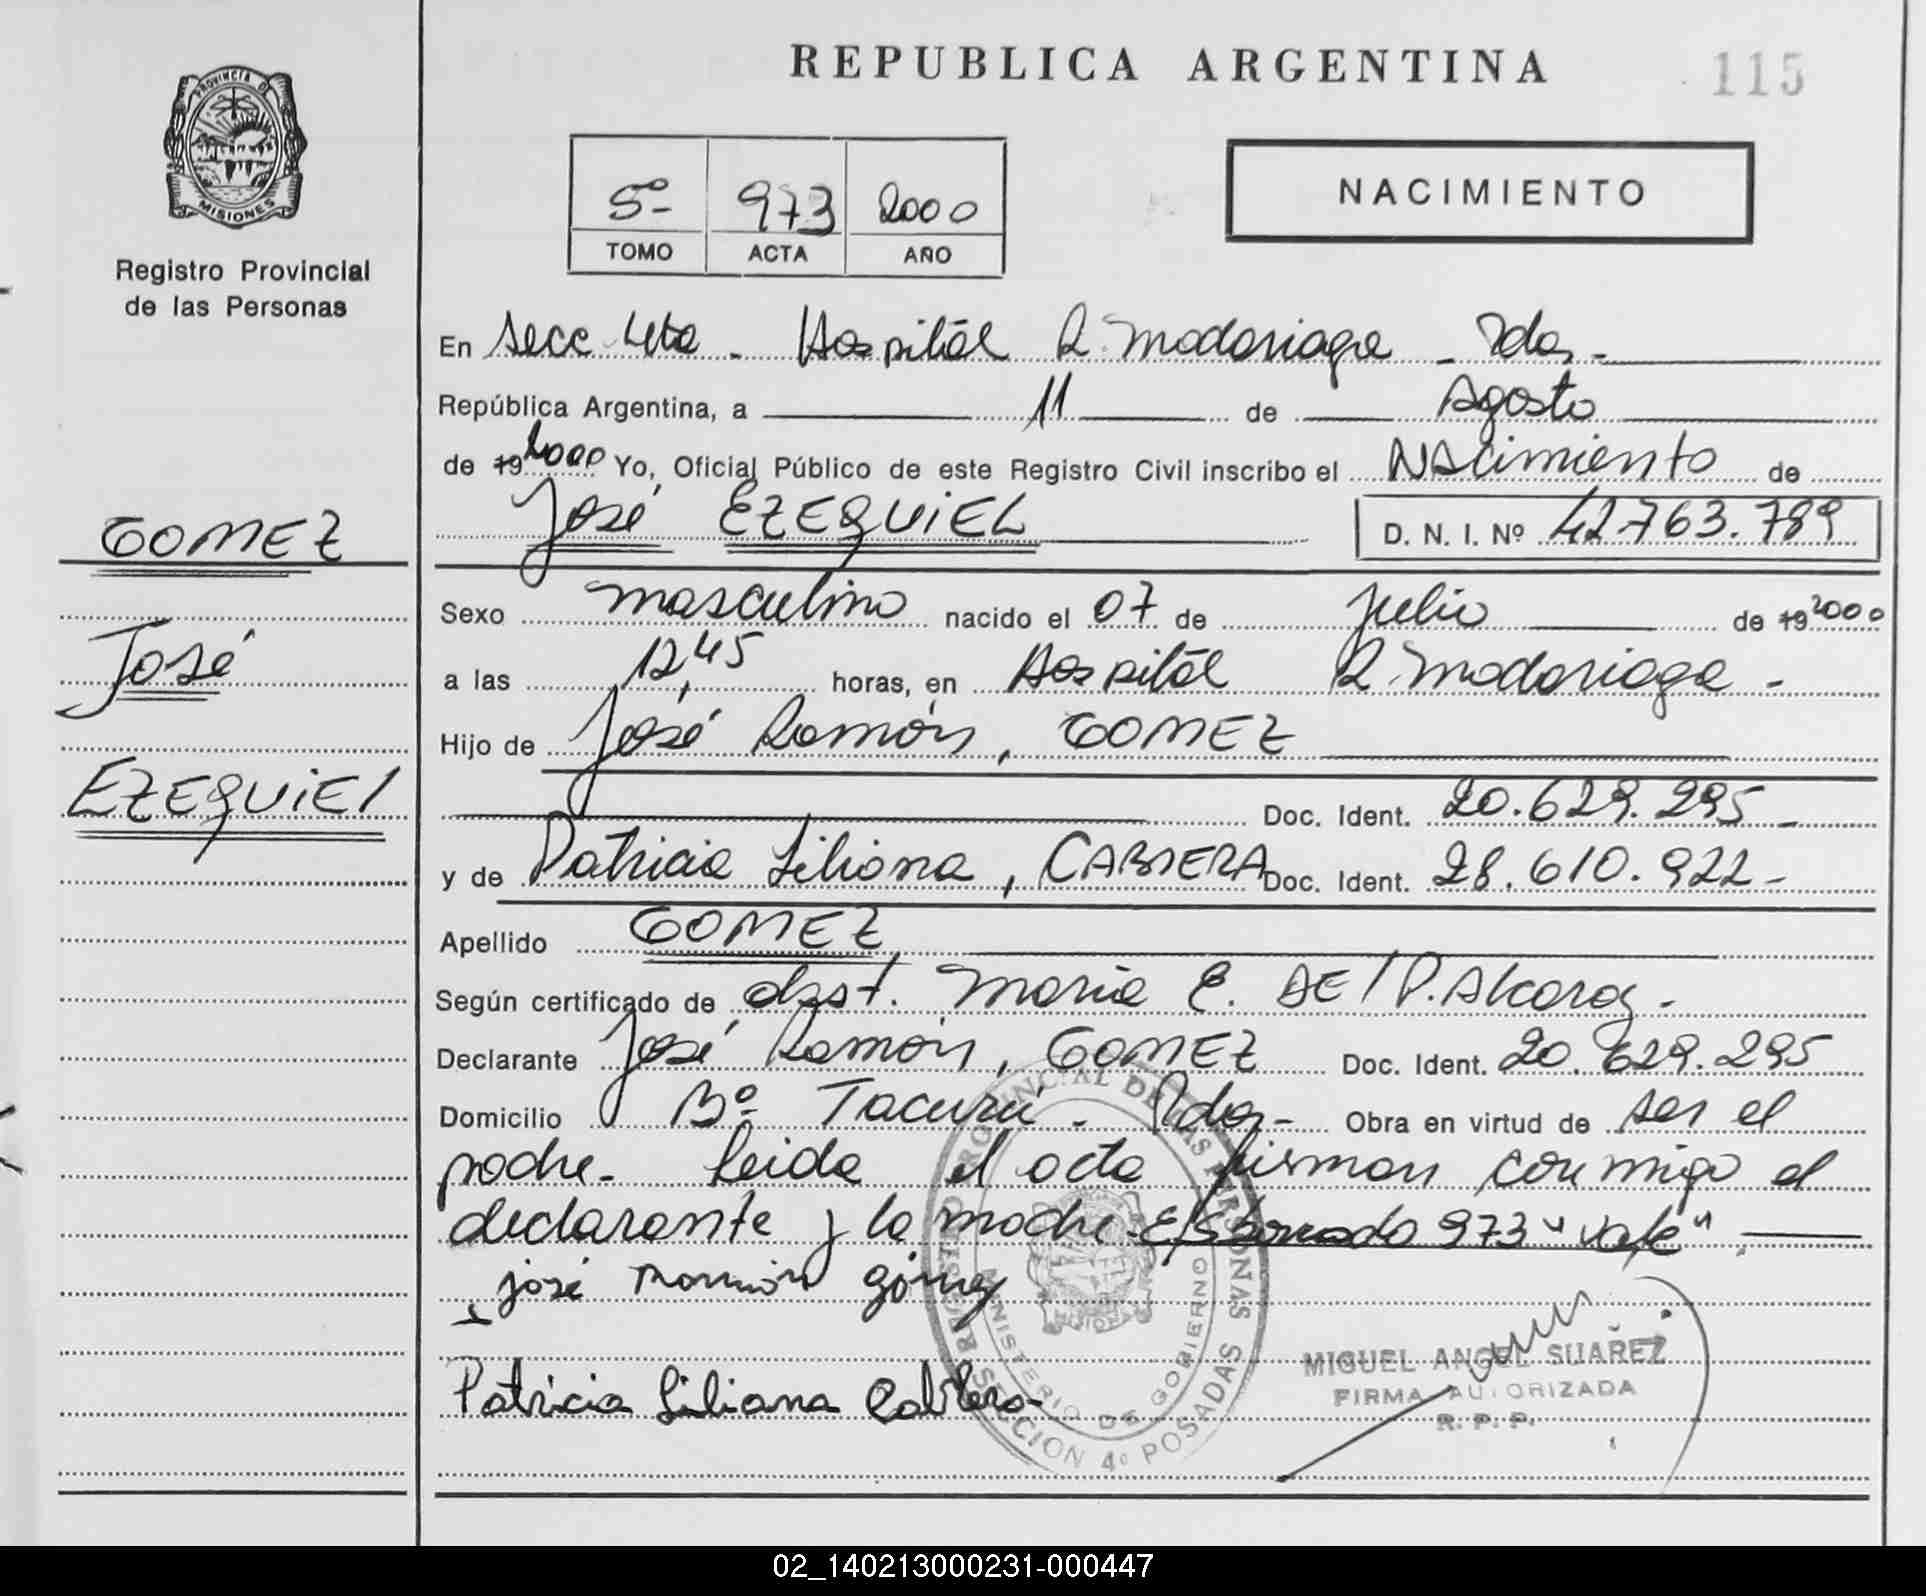 REPUBLICA ARGENTINA
115
PROVINCIA D
MISIONES
Registro Provincial
de las Personas
5º 973 2000
TOMO ACTA AÑO
NACIMIENTO
En Secc 4ta - Hospital R. Madariaga - Pdas -
República Argentina, a 11 de Agosto
de 19 2000 Yo, Oficial Público de este Registro Civil inscribo el NAcimiento de
José EZEQUiEL D. N. I. Nº 42.763.789
GOMEZ
José
EZEQUiEl
Sexo masculino nacido el 07 de Julio de 19 2000
a las 12,45 horas, en Hospital R. Madariaga -
Hijo de José Ramón, GOMEZ
Doc. Ident. 20.629.295 -
y de Patricia Liliana, CABRERA Doc. Ident. 28.610.922 -
Apellido GOMEZ
Según certificado de obst. Maria E. DEl P. Alcaraz -
Declarante José Ramón, GOMEZ Doc. Ident. 20.629.295
Domicilio Bº Tacurú - Pdas - Obra en virtud de ser el
padre - leida el acta firman conmigo el
declarante y la madre - E/S borrado 973 "vale"
josé Ramón gómez
Patricia Liliana Cabrera
REGISTRO PROVINCIAL DE LAS PERSONAS
MINISTERIO DE GOBIERNO
SECCION 4º POSADAS
MIGUEL ANGEL SUAREZ
FIRMA AUTORIZADA
R. P. P.
02_140213000231-000447